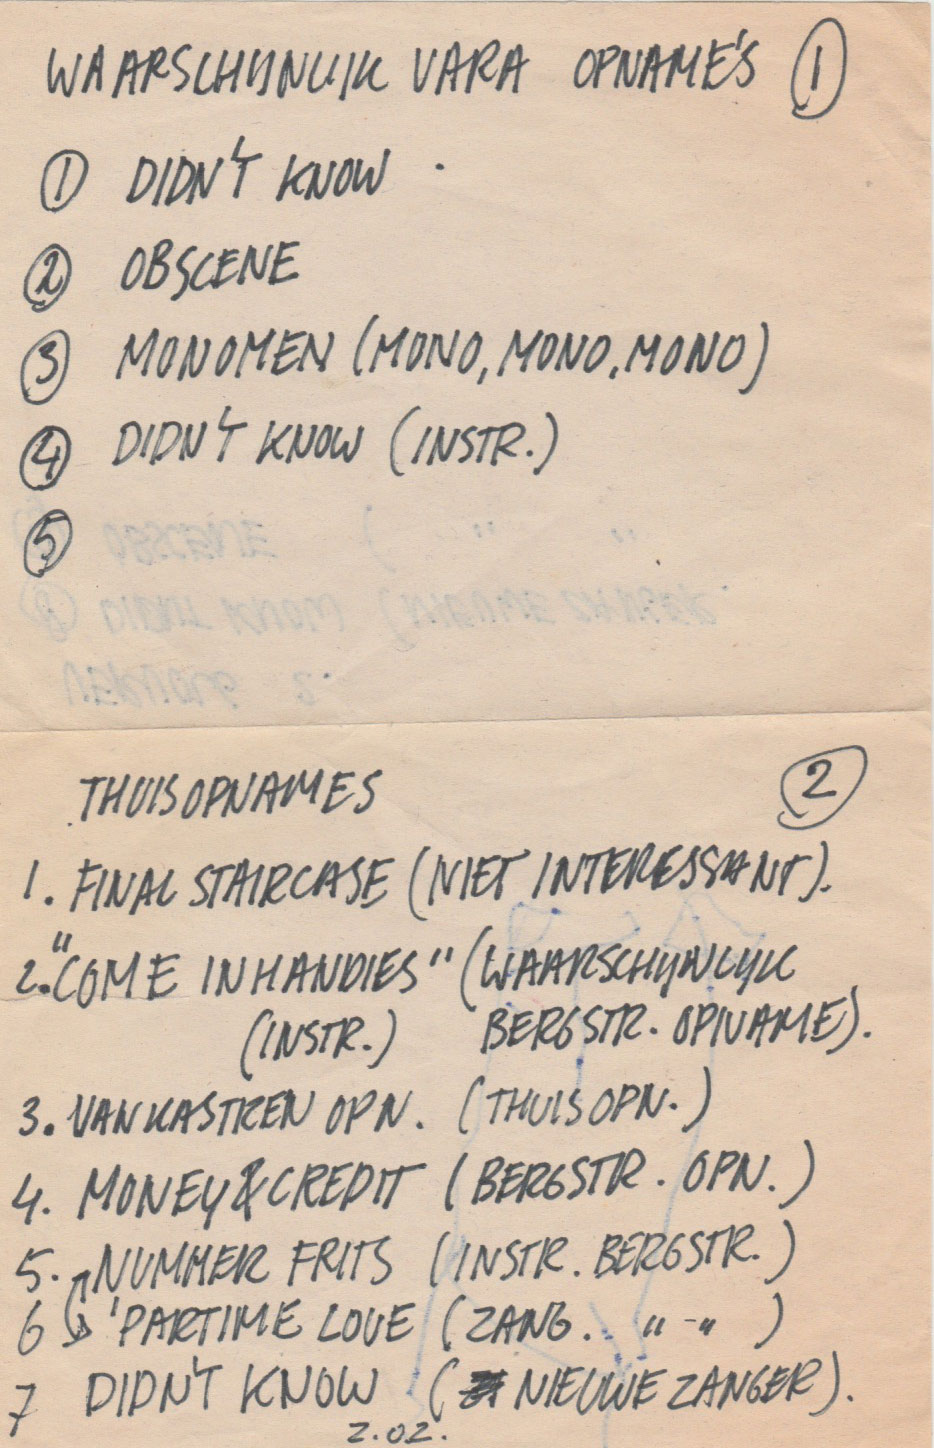 WAARSCHIJNLIJK VARA OPNAME'S ①
① DIDN'T KNOW .
② OBSCENE
③ MONOMEN (MONO, MONO, MONO)
④ DIDN'T KNOW (INSTR.)
⑤
THUISOPNAMES ②
1. FINAL STAIRCASE (NIET INTERESSANT).
2. "COME IN HANDIES" (WAARSCHIJNLIJK
(INSTR.) BERGSTR. OPNAME).
3. VAN KASTREN OPN. (THUIS OPN.)
4. MONEY & CREDIT (BERGSTR. OPN.)
5. NUMMER FRITS (INSTR. BERGSTR.)
6 'PARTIME LOVE (ZANG. " - " )
7 DIDN'T KNOW ( NIEUWE ZANGER).
2.02.